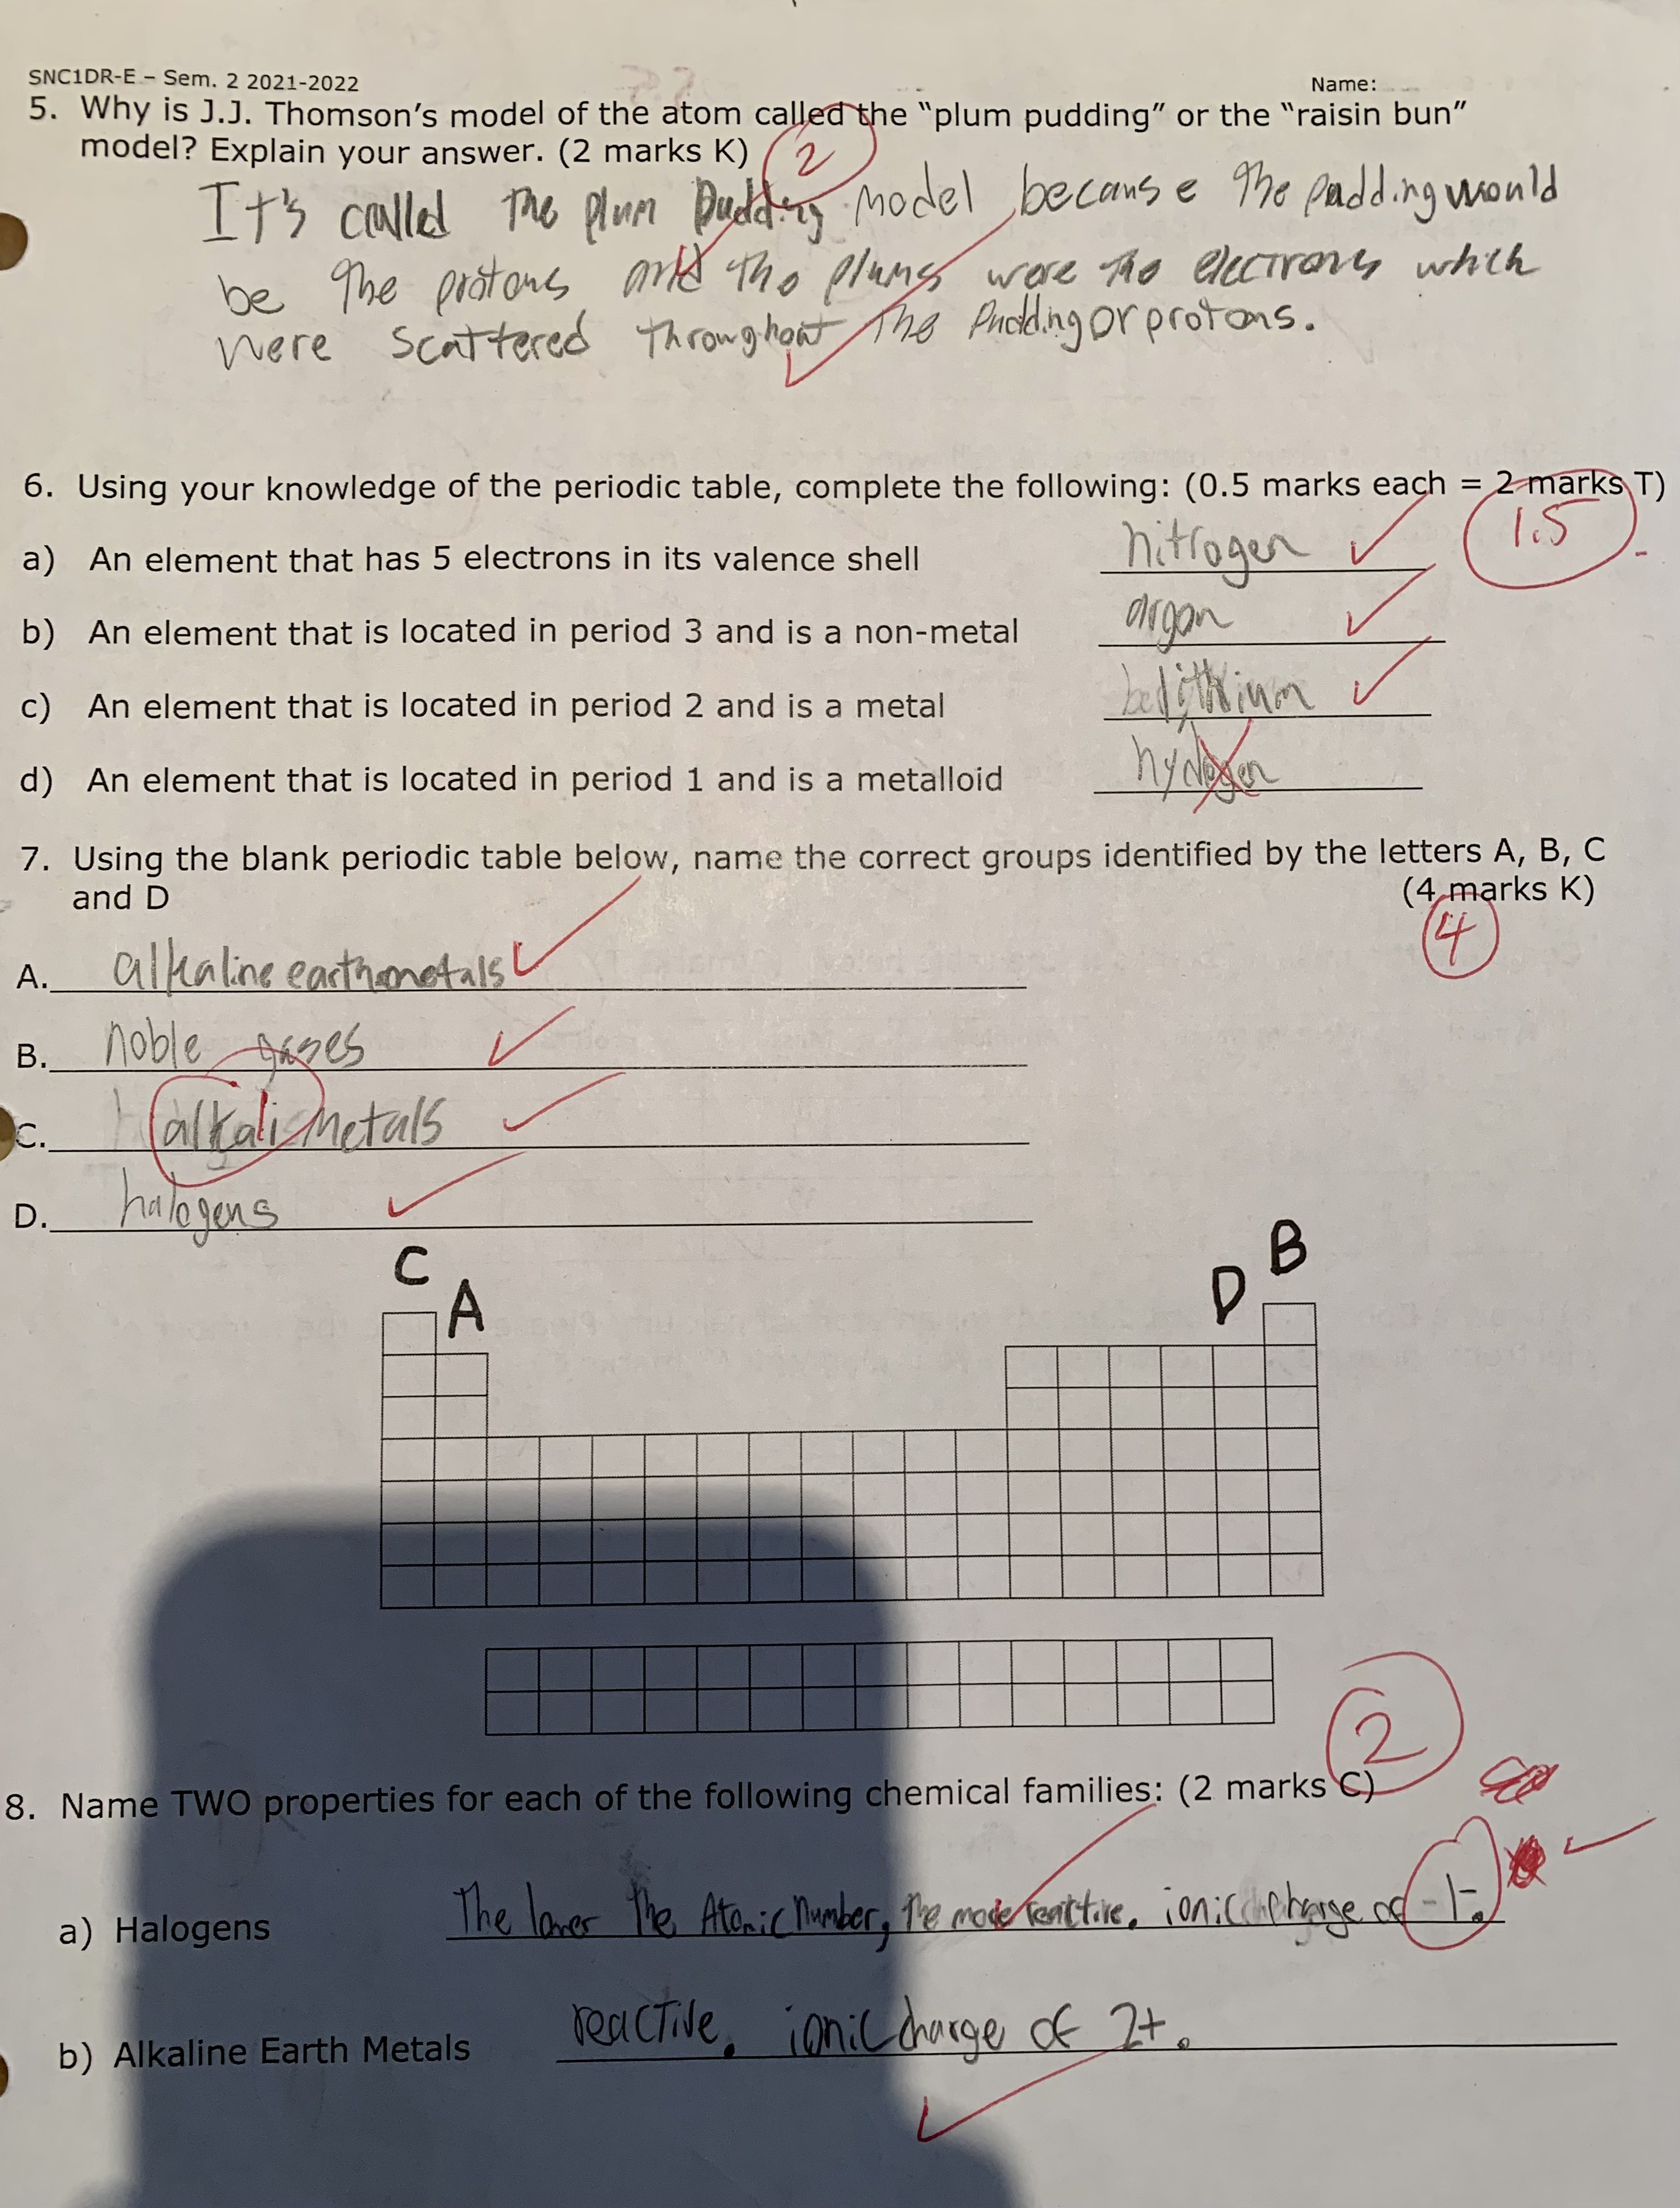 SNC1DR-E - Sem. 2 2021-2022 Name:
5. Why is J.J. Thomson's model of the atom called the "plum pudding" or the "raisin bun"
model? Explain your answer. (2 marks K) 2
It's called the plum Pudding model because the pudding would
be the protons and the plums were the electrons which
were scattered throughout the Pudding or protons.
6. Using your knowledge of the periodic table, complete the following: (0.5 marks each = 2 marks T)
1.5
a) An element that has 5 electrons in its valence shell nitrogen
b) An element that is located in period 3 and is a non-metal argon
c) An element that is located in period 2 and is a metal lithium
d) An element that is located in period 1 and is a metalloid hydogen
7. Using the blank periodic table below, name the correct groups identified by the letters A, B, C
and D (4 marks K)
4
A. alkaline earth metals
B. noble gases
C. alkali metals
D. halogens
C A D B
2
8. Name TWO properties for each of the following chemical families: (2 marks C)
a) Halogens The lower the Atomic number, the more reactive. ionic charge of 1-.
b) Alkaline Earth Metals reactive. ionic charge of 2+.